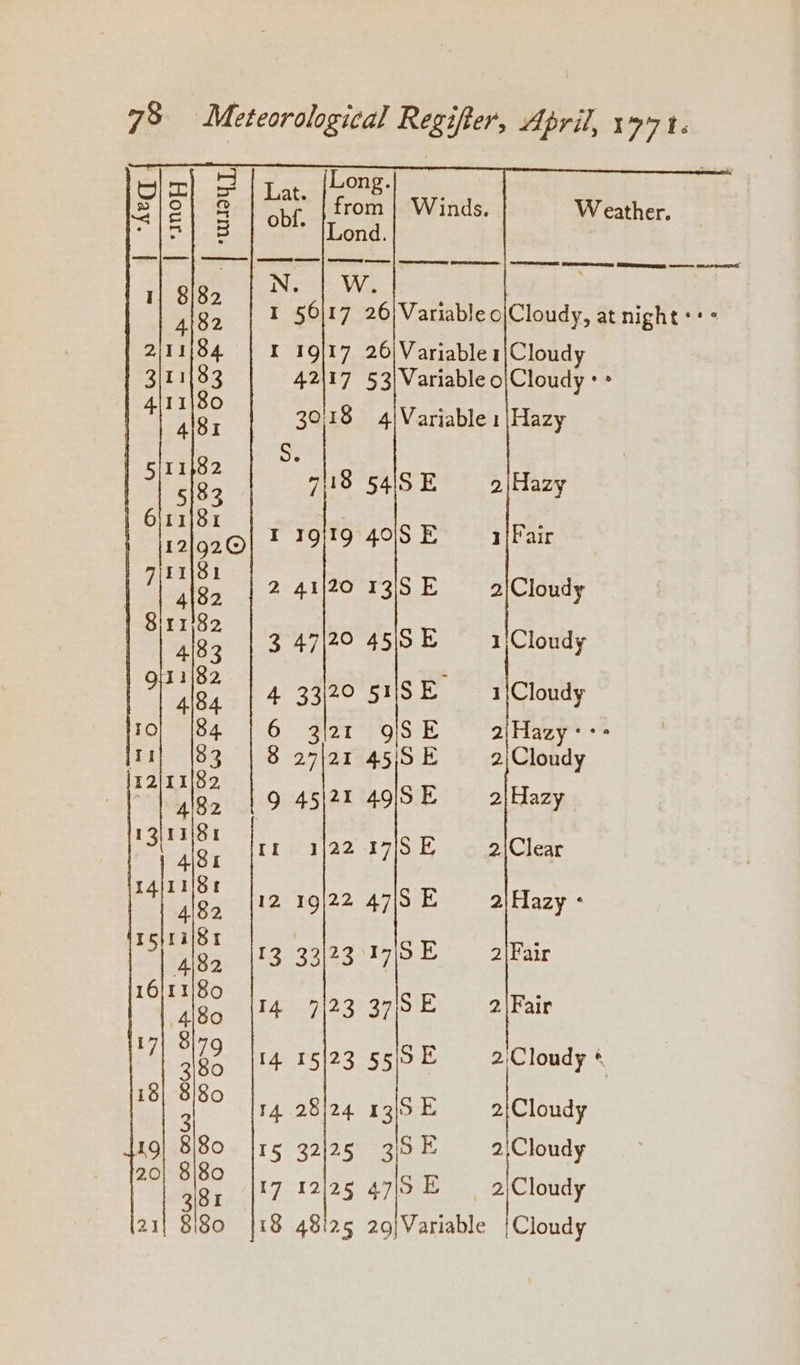 78 Meteorological Regiſter, April, 1771.
Day. | Hour. | Therm. | Lat. obſ. | Long. from Lond. | Winds. | Weather.
N. | W.
1 | 8 | 82
4 | 82 | 1 56 | 17 26 | Variable 0 | Cloudy, at night • • •
2 | 11 | 84 | 1 19 | 17 26 | Variable 1 | Cloudy
3 | 11 | 83 | 42 | 17 53 | Variable 0 | Cloudy • •
4 | 11 | 80
4 | 81 | 30 | 18 4 | Variable 1 | Hazy
S.
5 | 11 | 82
5 | 83 | 7 | 18 54 | S E 2 | Hazy
6 | 11 | 81
12 | 92 ☉ | 1 19 | 19 40 | S E 1 | Fair
7 | 11 | 81
4 | 82 | 2 41 | 20 13 | S E 2 | Cloudy
8 | 11 | 82
4 | 83 | 3 47 | 20 45 | S E 1 | Cloudy
9 | 11 | 82
4 | 84 | 4 33 | 20 51 | S E 1 | Cloudy
10 | 84 | 6 3 | 21 9 | S E 2 | Hazy • • •
11 | 83 | 8 27 | 21 45 | S E 2 | Cloudy
12 | 11 | 82
4 | 82 | 9 45 | 21 49 | S E 2 | Hazy
13 | 11 | 81
4 | 81 | 11 1 | 22 17 | S E 2 | Clear
14 | 11 | 81
4 | 82 | 12 19 | 22 47 | S E 2 | Hazy •
15 | 11 | 81
4 | 82 | 13 33 | 23 17 | S E 2 | Fair
16 | 11 | 80
4 | 80 | 14 7 | 23 37 | S E 2 | Fair
17 | 8 | 79
3 | 80 | 14 15 | 23 55 | S E 2 | Cloudy •
18 | 8 | 80
3 | 14 28 | 24 13 | S E 2 | Cloudy
19 | 8 | 80 | 15 32 | 25 3 | S E 2 | Cloudy
20 | 8 | 80
3 | 81 | 17 12 | 25 47 | S E 2 | Cloudy
21 | 8 | 80 | 18 48 | 25 29 | Variable | Cloudy